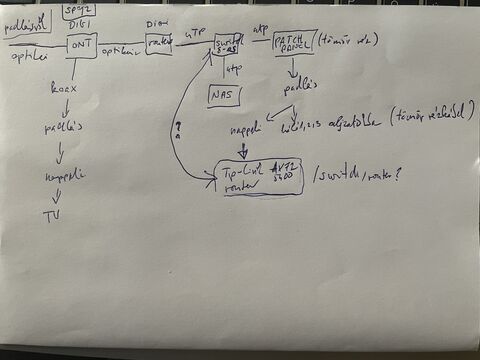 padlásról
SPGJ2
DIGI
ONT
optikai
optikai
DIGI
router
UTP
switch
8-as
utp
PATCH
PANEL
(tömör réz)
utp
NAS
koax
padlás
nappali
TV
padlás
nappali
háló 1,2,3 aljzatokba (tömör rézkábel)
?
Tp-Link AX72
5400
router
/switch, router?